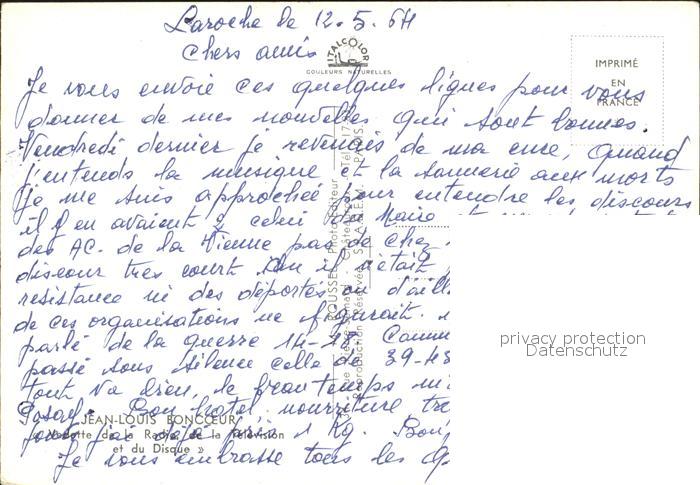 Laroche le 12.5.64
Chers amis
ITALCOLOR
COULEURS NATURELLES
IMPRIMÉ
EN
FRANCE
Je vous envoie ces quelques lignes pour vous
donner de mes nouvelles qui sont bonnes.
Vendredi dernier je revenais de ma cure, quand
j'entends la musique et la sonnerie aux morts
je me suis approchée pour entendre les discours
il y en avaient 2 celui du Maire
des AC. de la Vienne pas de chez
discour très court. On il n'était
résistance ni des déportés ou d'aill
de ces organisations ne figurait.
parlé de la guerre 14-18 Comm
passé sous silence celle de 39-45
tout va bien, le printemps
Bon hotel, nourriture
j'ai déjà pris 1 Kg. Bon
Je vous embrasse tous les
JEAN-LOUIS BONCŒUR
« Vedette de la Radio, de la Télévision
et du Disque »
privacy protection
Datenschutz